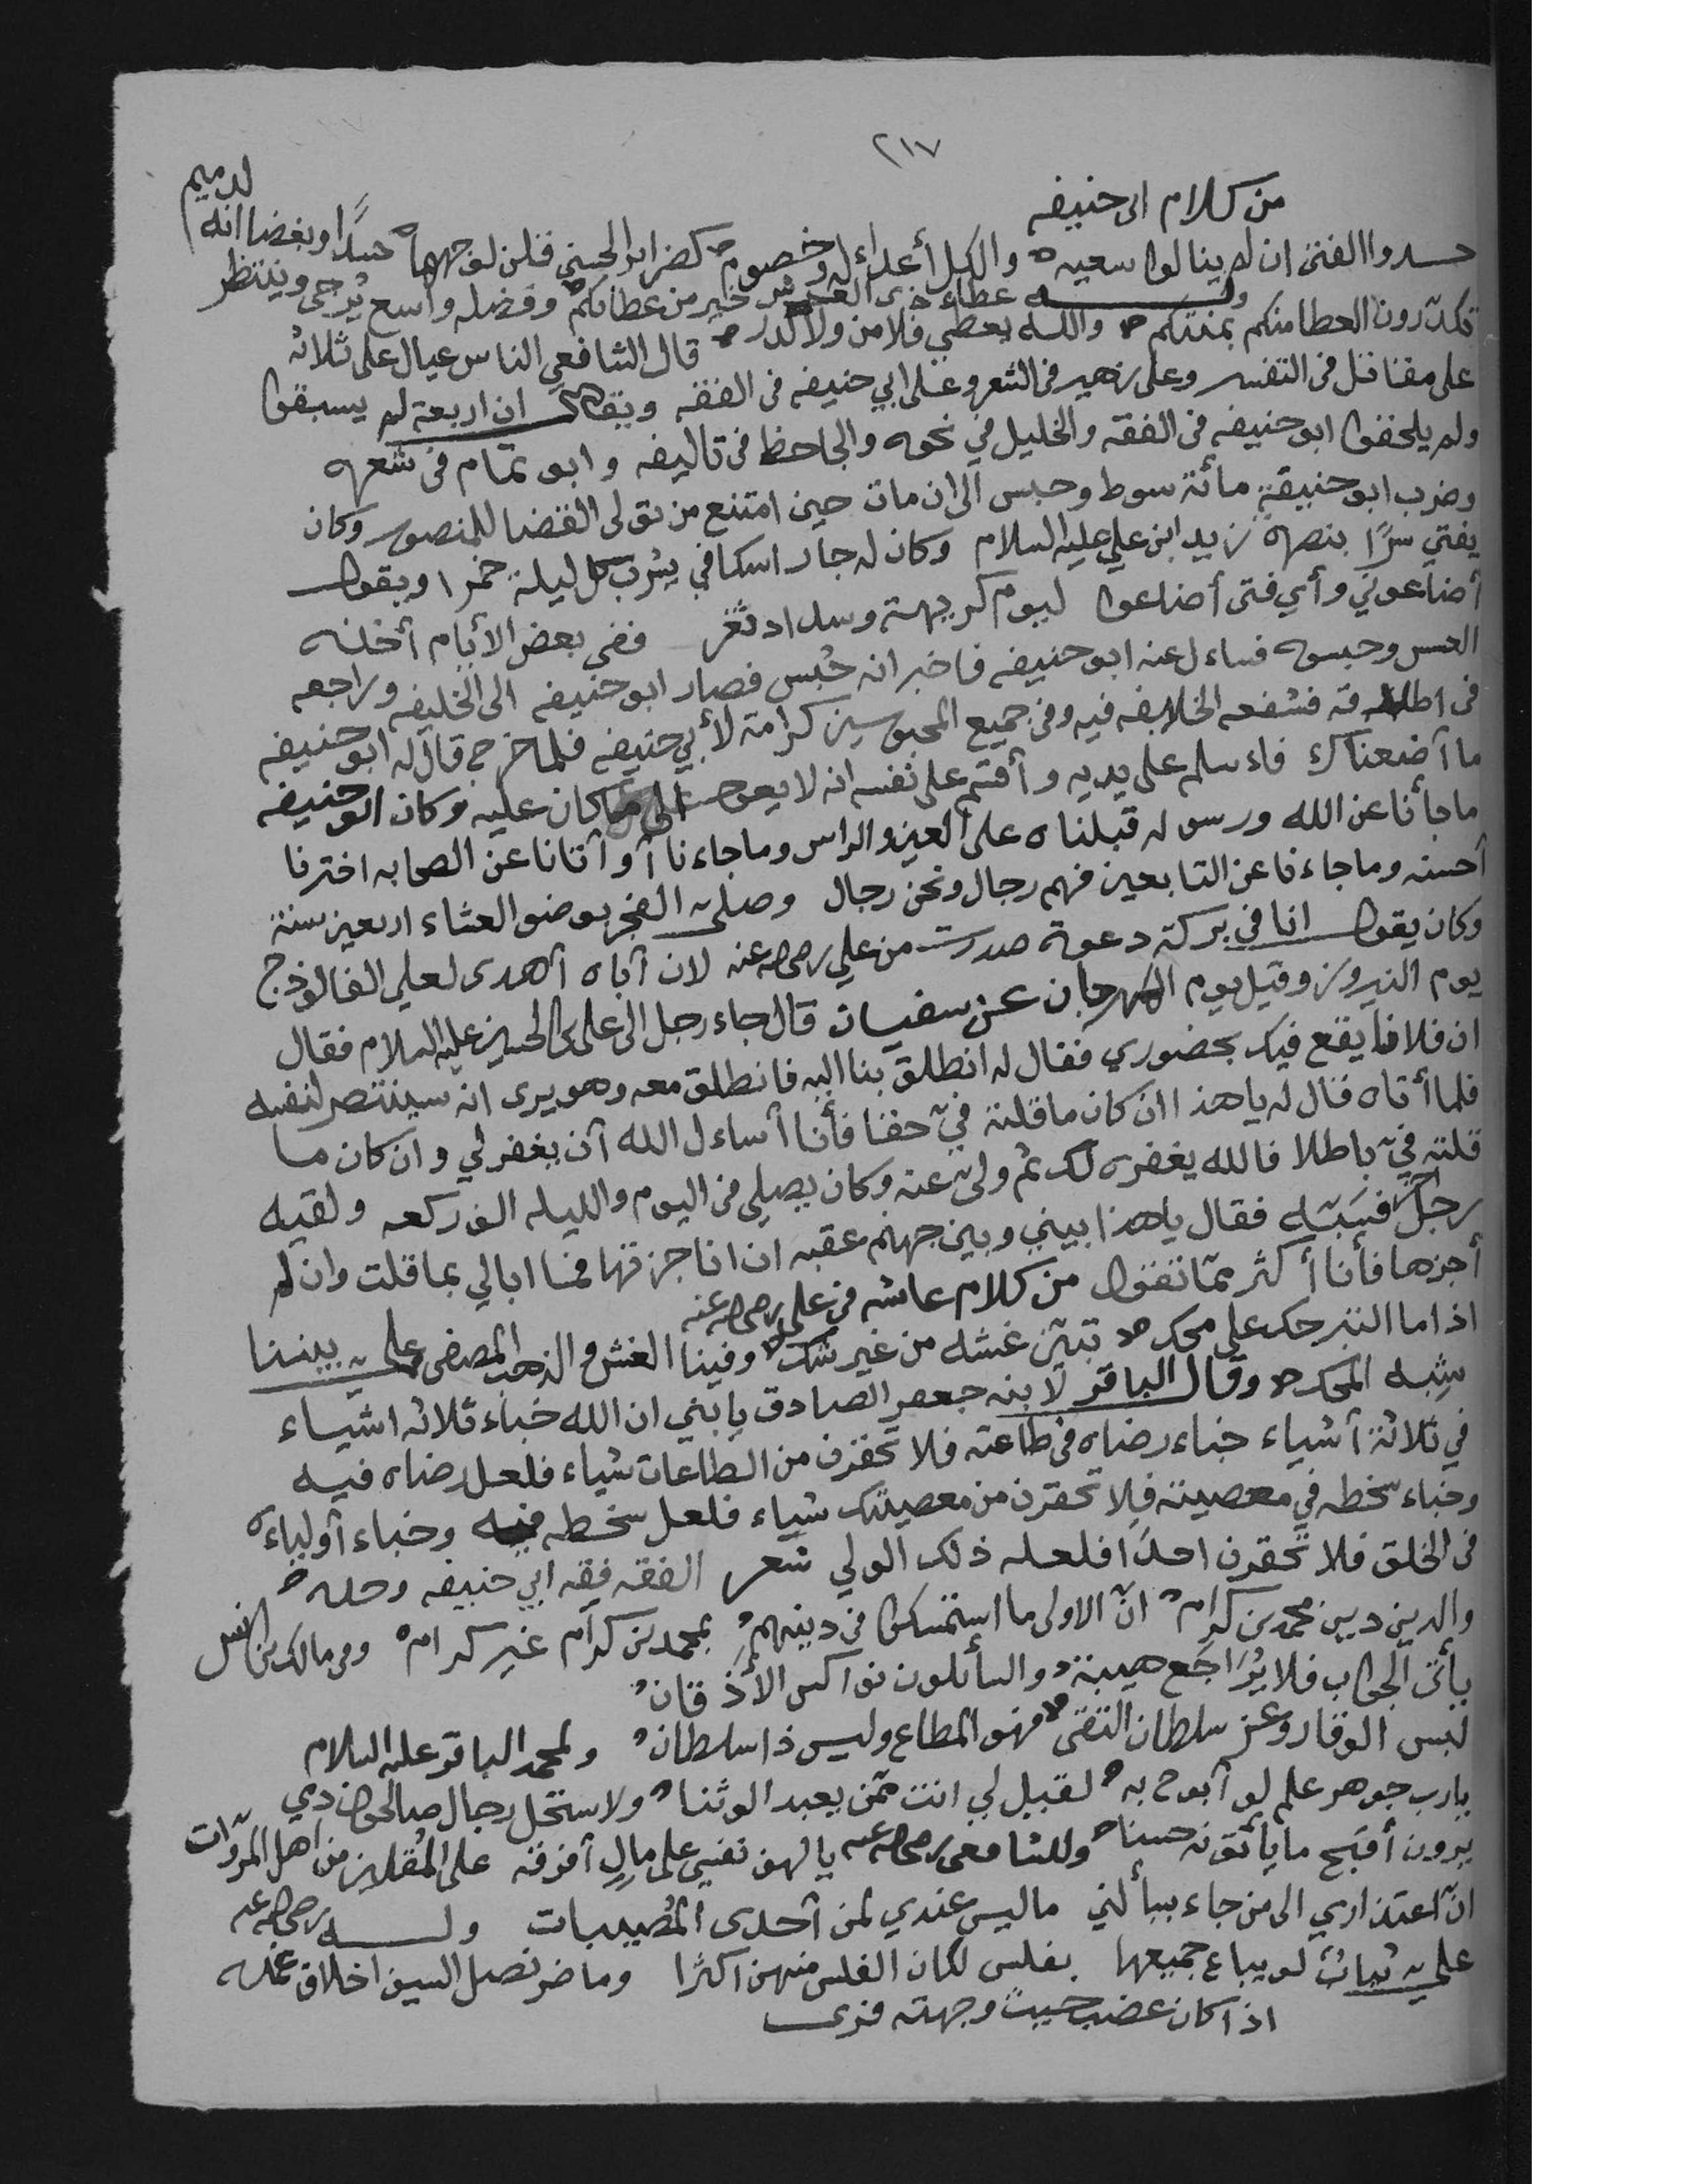 ٢١٧
من كلام ابى حنيفه
حسدوا الفتى ان لم ينالوا سعيه والكل أعداء له وخصوم كضرائر الحسنى قلن لوجهها حسدًا وبغضا انه لدميم
وله عطاء ذى العرش خير من عطائكم وفضله واسع يُرجى وينتظر
تكدّرون العطا منكم بمنتكم والله يعطي فلا من ولا كدر قال الشافعي الناس عيال على ثلاثه
على مقاتل فى التفسير وعلى زهير فى الشعر وعلى ابي حنيفه فى الفقه ويقال ان اربعة لم يسبقوا
ولم يلحقوا ابو حنيفه فى الفقه والخليل في نحوه والجاحظ فى تاليفه وابو تمام فى شعره
وضرب ابو حنيفة مأئة سوط وحبس الى ان مات حين امتنع من تولى القضا للمنصور وكان
يفتي سرًا بنصرة زيد ابن علي عليه السلام وكان له جار اسكافي يشرب كل ليلة خمرا ويقول
أضاعوني وأي فتى أضاعوا ليوم كريهة وسداد ثغر ففي بعض الأيام أخذه
العسس وحبسوه فساءل عنه ابو حنيفه فاخبر انه حُبس فصار ابو حنيفه الى الخليفه وراجعه
فى اطلاقه فشفعه الخلايفه فيه وفى جميع المحبوسين كرامة لأبي حنيفه فلما خرج قال له ابو حنيفه
ما أضعناك فاءسلم على يديه وأقسم على نفسه انه لا يعود الى ما كان عليه وكان ابو حنيفه
ما جأنا عن الله ورسوله قبلناه على العين والراس وما جاءنا أو أتانا عن الصحابه اخترنا
أحسنه وما جاءنا عن التابعين فهم رجال ونحن رجال وصلى الفجر بوضو العشاء اربعين سنة
وكان يقول انا في بركة دعوة صدرت من علي رضى الله عنه لان آباه أهدى لعلي الفالوذج
يوم النيروز وقيل يوم المهرجان عن سفيان قال جاء رجل الى على بن الحسين عليه السلام فقال
ان فلانا يقع فيك بحضوري فقال له انطلق بنا اليه فانطلق معه وهو يرى انه سينتصر لنفسه
فلما أتاه قال له يا هذا ان كان ما قلته فيّ حقا فأنا أساءل الله أن يغفر لي وان كان ما
قلته فيّ باطلا فالله يغفره لك ثم ولى عنه وكان يصلي فى اليوم والليله الف ركعه ولقيه
رجل فسبّه فقال يا هذا بيني وبين جهنم عقبه ان انا جزتها فما ابالي بما قلت وان لم
أجزها فأنا أكثر مما تقول من كلام عائشه في على رضى الله عنه
اذا ما التبر حك على محك تبيّن غشه من غير شك وفينا الغش والذهب المصفى على بيننا
شبه المحك وقال الباقر لابنه جعفر الصادق يا بني ان الله خباء ثلاثه اشياء
في ثلاثة أشياء خباء رضاه فى طاعته فلا تحقرن من الطاعات شياء فلعل رضاه فيه
وخباء سخطه في معصيته فلا تحقرن من معصيتك شياء فلعل سخطه فيه وخباء أولياءه
فى الخلق فلا تحقرن احدًا فلعله ذلك الولي شعر الفقه فقه ابي حنيفه وحده
والدين دين محمد بن كرام انّ الاولى ما استمسكوا فى دينهم بمحمد بن كرام غير كرام وفى مالك بن انس
يأتى الجواب فلا يُرَاجَع هيبة والسأئلون نواكس الأذقان
لبس الوقار وعز سلطان التقى فهو المطاع وليس ذا سلطان ولمحمد الباقر عليه السلام
يا رب جوهر علم لو أبوح به لقيل لي انت ممن يعبد الوثنا ولاستحل رجال صالحون دمي
يرون أقبح ما يأتونه حسنا وللشافعى رضى الله عنه يا لهف نفسي على مالٍ أفرقه على المُقلين من اهل المروّات
انّ اعتذاري الى من جاء يسألني ما ليس عندي لمن أحدى المُصيبات وله رضى الله عنه
على ثيابٌ لو يباع جميعها بفلس لكان الفلس منهن اكثرا وما ضر نصل السيف اخلاق غمده
اذا كان عضب حيث وجهته فرى